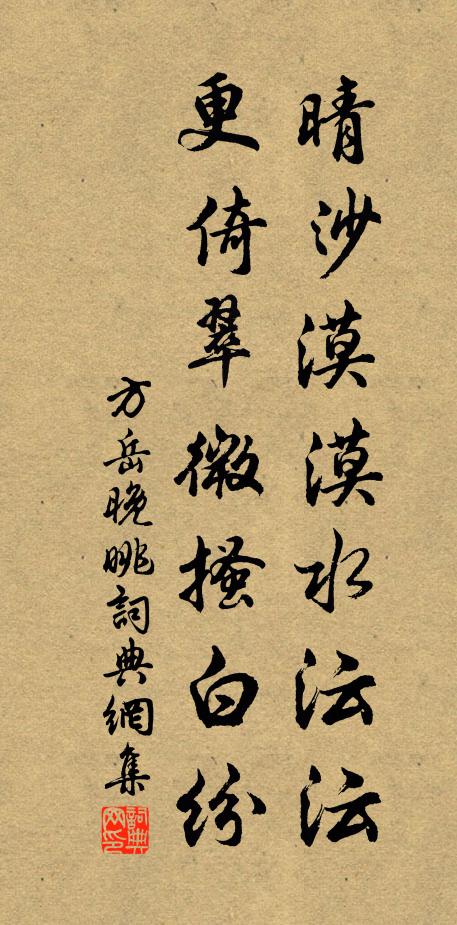 晴沙漠漠水沄沄
更倚翠微搔白紛
方岳晚眺詞典網集
詞典网印